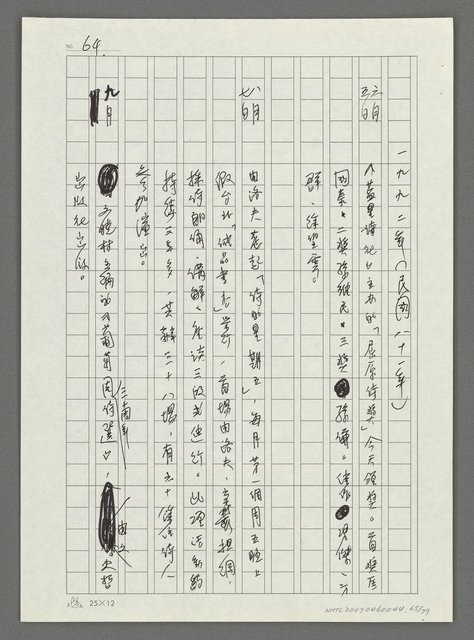 NO. 64.
一九九二年(民國八十一年)
六月
五日
《藍星詩社》主辦的「屈原詩獎」今天頒獎。首獎唐
國泰。二獎孫維民。三獎孫謙。佳作項傑、方
群、徐望雲。
八月
七日
由洛夫發起「詩的星期五」,每月第一個周五晚上
假台北「誠品書店」舉行,首場由洛夫、辛鬱擔綱,
採詩朗誦、講解、座談三段式進行。此項活動約
持續三年多,共辦三十八場,有六十餘位詩人
參加演出。
九月
文曉村主編的《葡萄園詩選》,
三十周年
由文史哲
出版社出版。
25×12
NMTL20070460044, 65/79